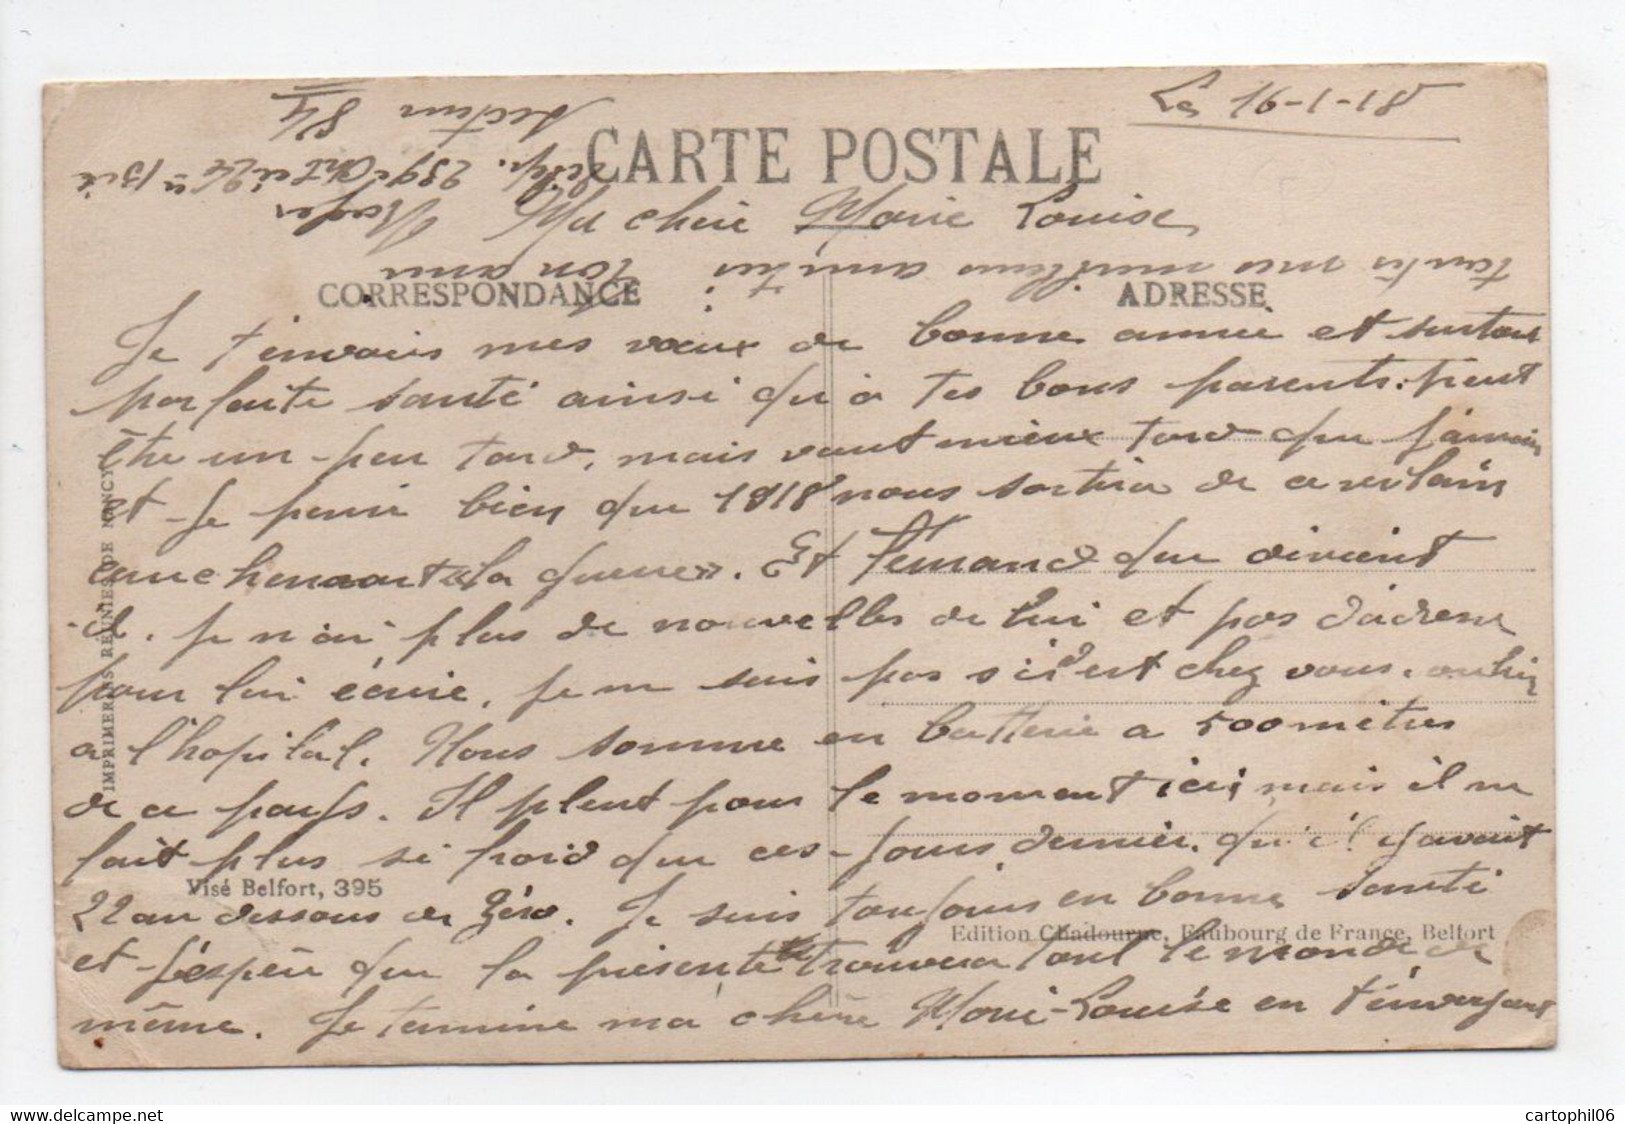 Le 16-1-18
CARTE POSTALE
Ma chère Marie Louise
CORRESPONDANCE
ADRESSE
Je t'envoies mes vœux de bonne année et surtout
parfaite santé ainsi qu'à tes bons parents. peut
être un peu tard, mais vaut mieux tard que jamais
et je pense bien que 1918 nous sortira de ce vilain
cauchemar «la guerre». Et Fernand que devient
il. Je n'ai plus de nouvelles de lui et pas d'adresse
pour lui écrire. Je ne sais pas s'il est chez vous, ou bien
a l'hopital. Nous somme en batterie a 500 mètres
de ce pays. Il pleut pour le moment ici, mais il ne
fait plus si froid que ces jours dernier. qu'il y avait
22 au dessous de zéro. Je suis toujours en bonne santé
et j'espère que la présente trouvera tout le monde de
même. Je termine ma chère Marie-Louise en t'envoyant
toutes mes meilleurs amitiés
Ton ami
Roger
239e 24e Bie
Secteur 84
IMPRIMERIES RÉUNIES DE NANCY
Visé Belfort, 395
Edition Chadourne, Faubourg de France, Belfort
cartophil06